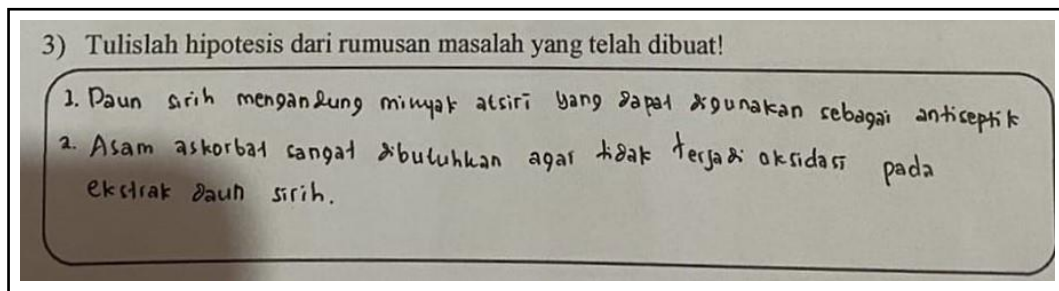 3) Tulislah hipotesis dari rumusan masalah yang telah dibuat!
1. Daun sirih mengandung minyak atsiri yang dapat digunakan sebagai antiseptik
2. Asam askorbat sangat dibutuhkan agar tidak terjadi oksidasi pada
ekstrak daun sirih.